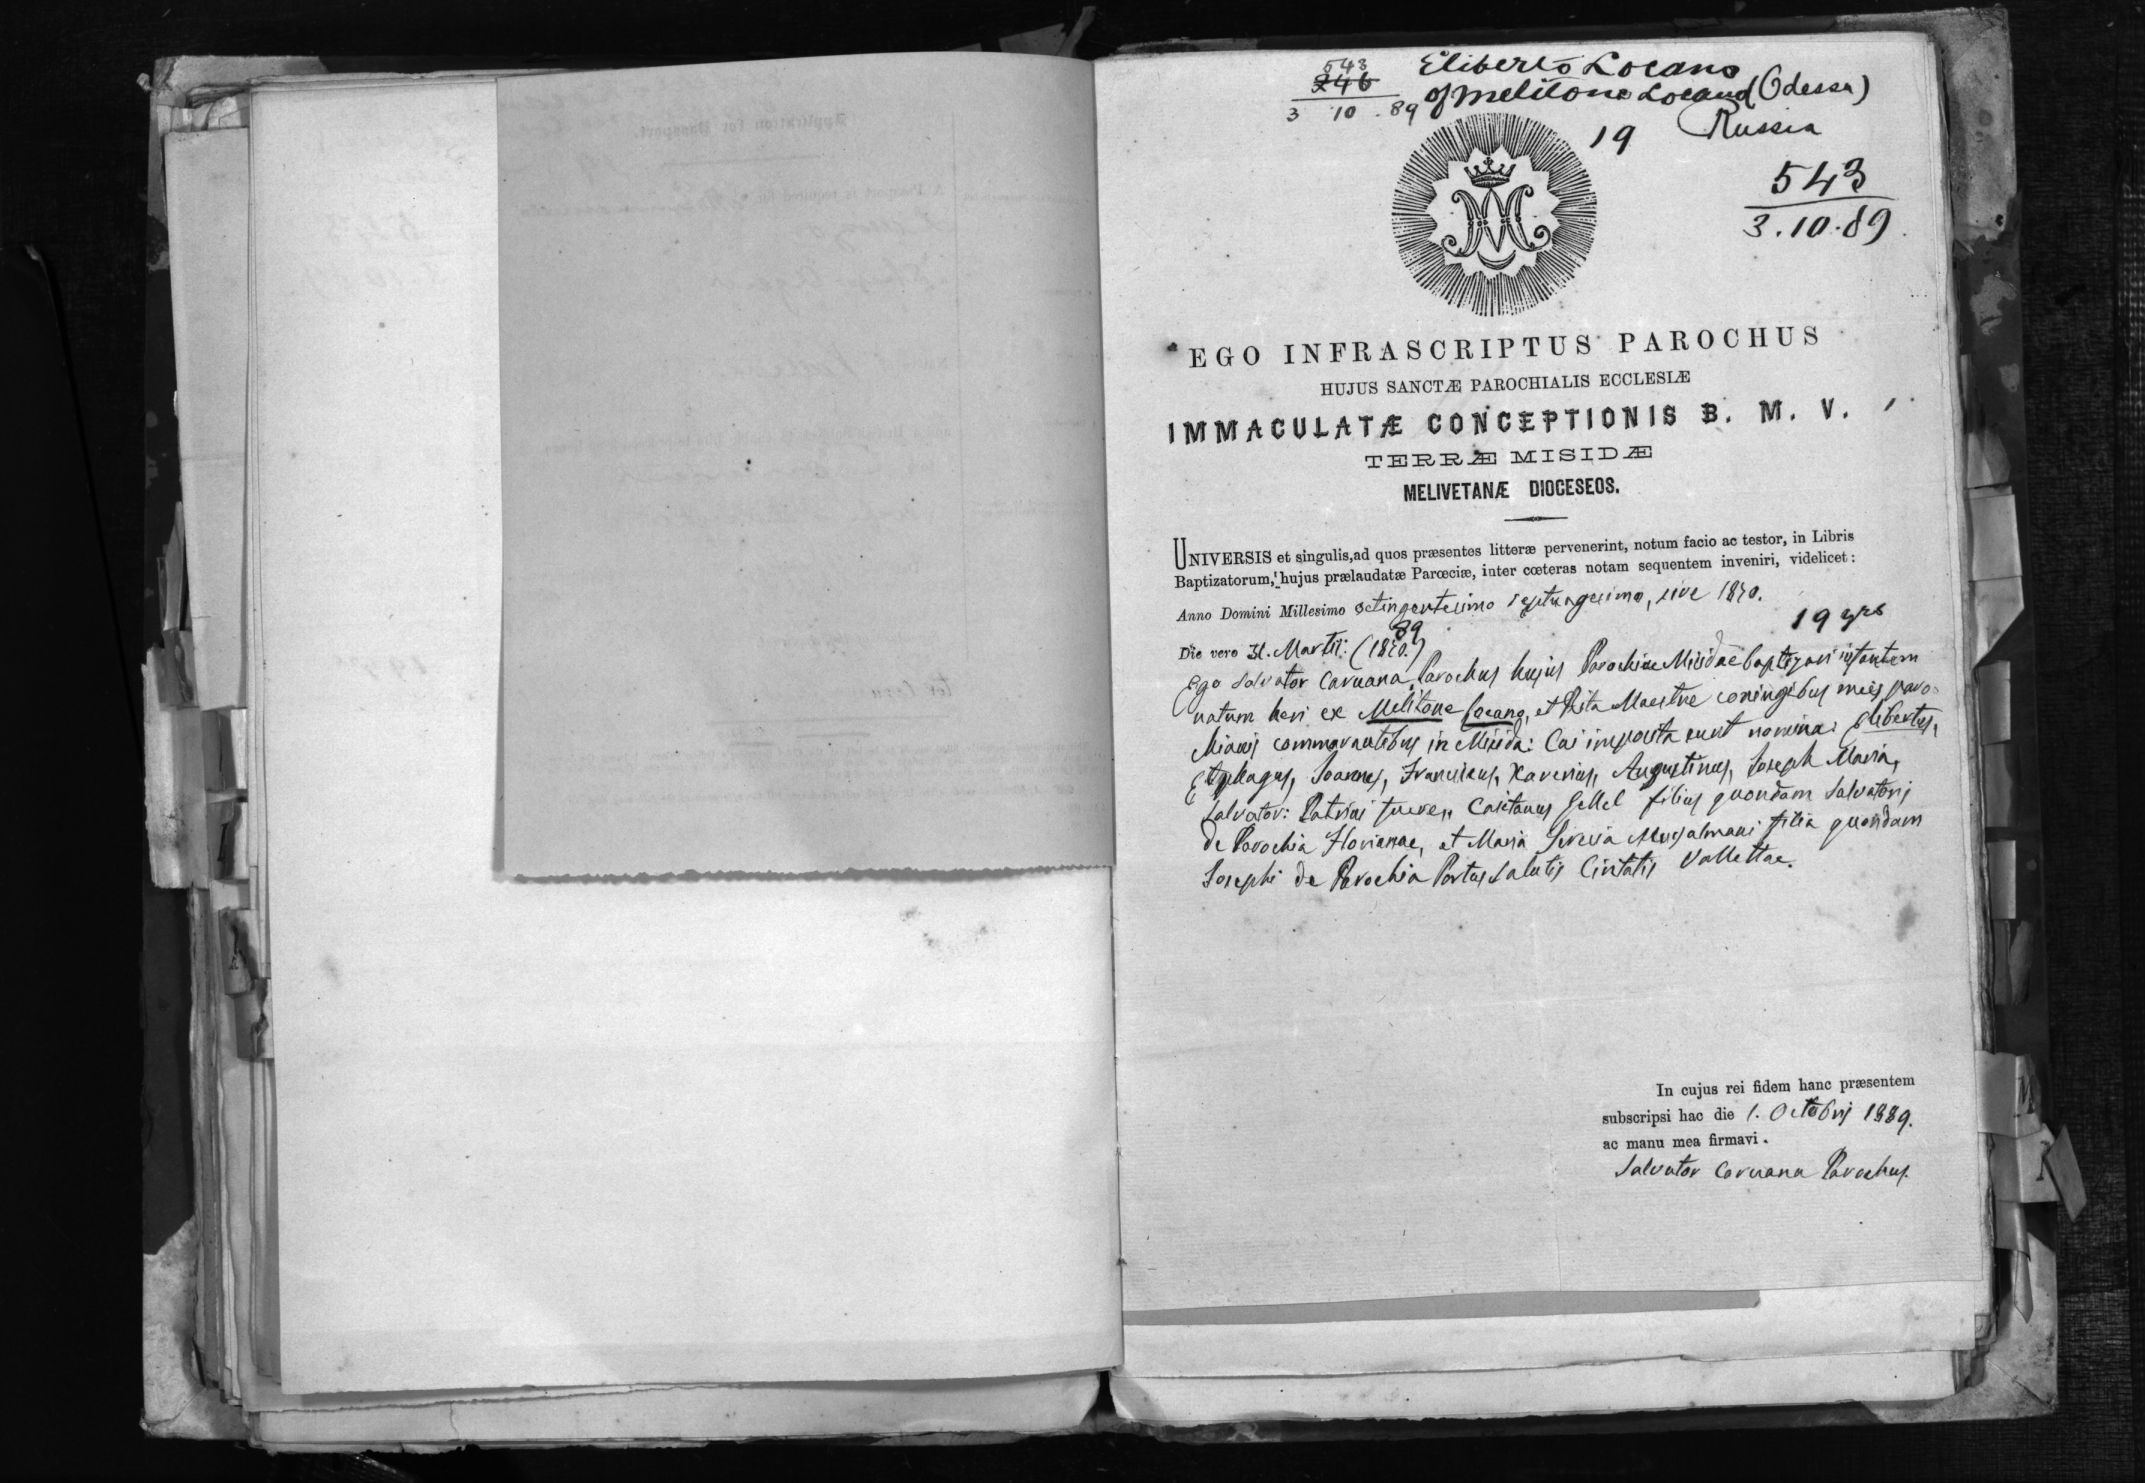 543
346
3 10 . 89
Eliberto Locano
of Melitone Locano (Odessa)
19 Russia
543
3.10.89.
EGO INFRASCRIPTUS PAROCHUS
HUJUS SANCTÆ PAROCHIALIS ECCLESIÆ
IMMACULATÆ CONCEPTIONIS B. M. V.
TERRÆ MISIDÆ
MELIVETANÆ DIOCESEOS.
UNIVERSIS et singulis, ad quos præsentes litteræ pervenerint, notum facio ac testor, in Libris
Baptizatorum, hujus prælaudatæ Parœciæ, inter cœteras notam sequentem inveniri, videlicet:
Anno Domini Millesimo octingentesimo septuagesimo, sive 1870.
19 yrs
89
Die vero 31. Martii: (1870.)
Ego Salvator Caruana Parochus hujus Parochiae Misidae baptizavi infantem
natum heri ex Melitone Locano, et Rita Maestre conjugibus meis paro
chianis commorantibus in Misida: Cui imposita sunt nomina: Elibertus,
Joannes, Franciscus, Xaverius, Augustinus, Joseph Maria,
Salvator: Patrini fuere, Cajetanus Gellel filius quondam Salvatoris
de Parochia Florianae, et Maria Musalmani filia quondam
Josephi de Parochia Portus Salutis Civitatis Vallettae.
In cujus rei fidem hanc præsentem
subscripsi hac die 1. Octobris 1889.
ac manu mea firmavi.
Salvator Caruana Parochus.